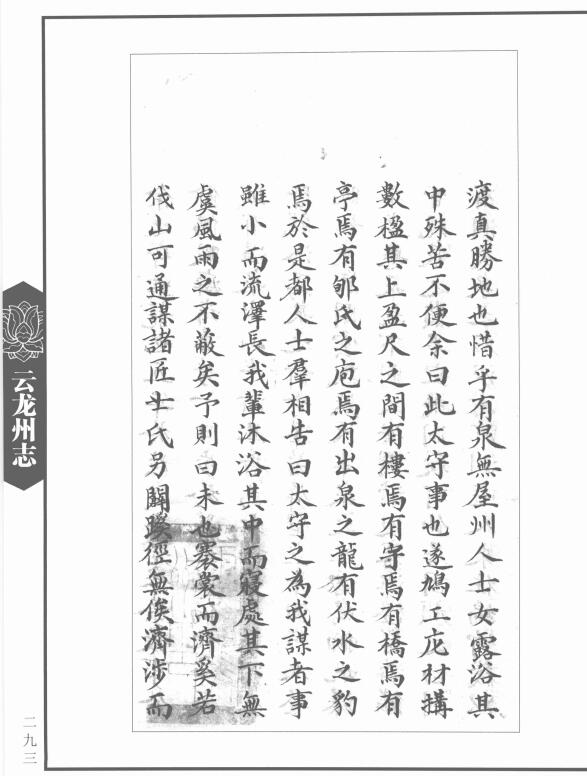 渡真勝地也惜乎有泉無屋州人士女露浴其
中殊苦不便余曰此太守事也遂鳩工庀材搆
數楹其上盈尺之間有樓焉有宇焉有橋焉有
亭焉有郇氏之庖焉有出泉之龍有伏水之豹
焉於是都人士羣相告曰太守之為我謀者事
雖小而流澤長我輩沐浴其中而寢處其下無
虞風雨之不蔽矣予則曰未也褰裳而濟奚若
伐山可通謀諸匠士氏另闢蹊徑無俟濟涉而
云龙州志
二九三